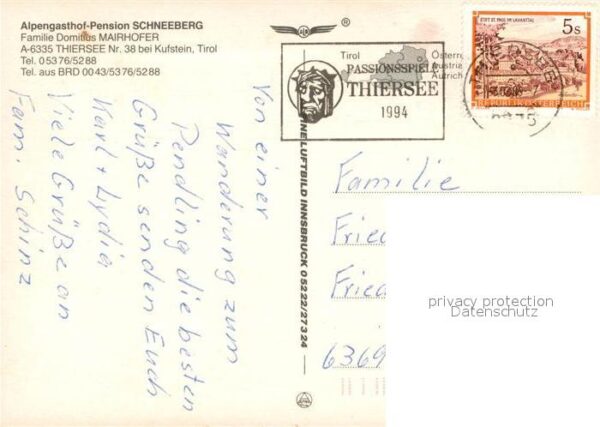 Alpengasthof-Pension SCHNEEBERG
Familie Domitius MAIRHOFER
A-6335 THIERSEE Nr. 38 bei Kufstein, Tirol
Tel. 05376/5288
Tel. aus BRD 0043/5376/5288
®
Tirol
PASSIONSSPIELE
THIERSEE
1994
STIFT ST. PAUL IM LAVANTTAL
5s
REPUBLIK ÖSTERREICH
Von einer
Wanderung zum
Pendling die besten
Grüße senden Euch
Karl + Lydia
Viele Grüße an
Fam. Schinz
NE LUFTBILD INNSBRUCK 05222/27324
Familie
Fried
Fried
6369
privacy protection
Datenschutz